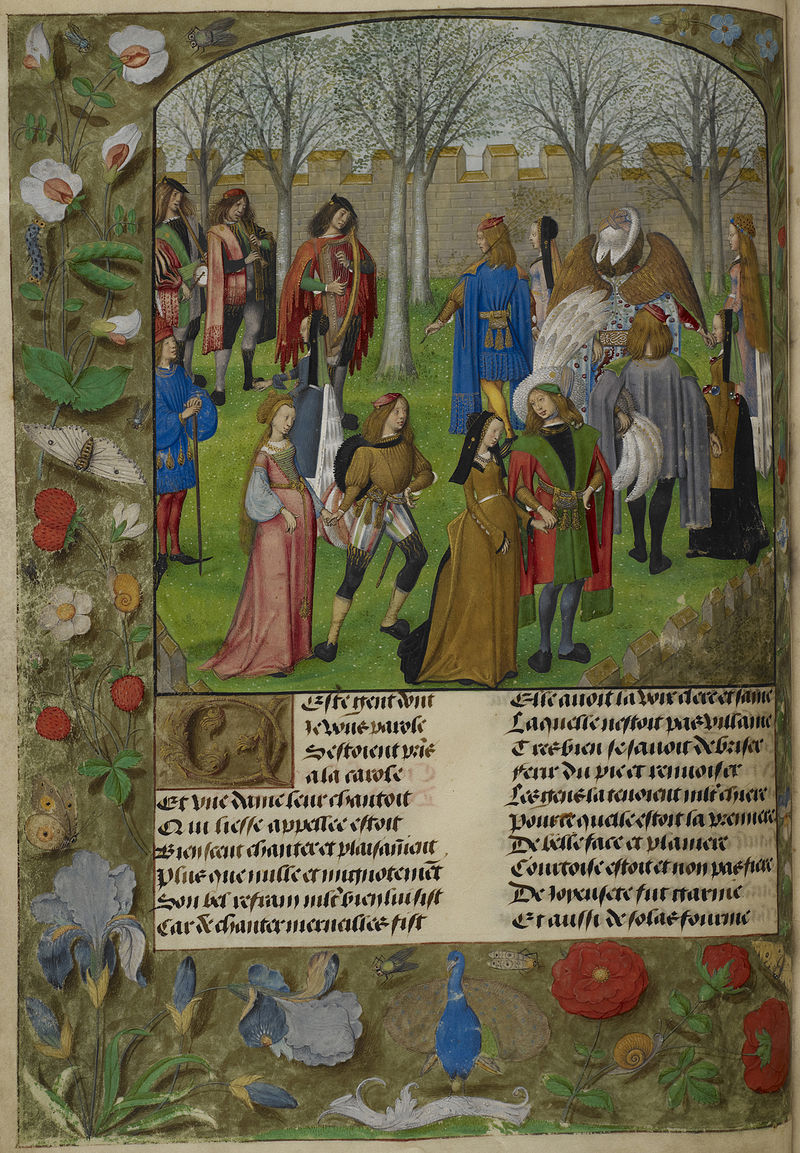 Ceste gent dont
Je vous parole
Sestoient pris
a la carole
Et vne dame leur chantoit
Qui liesse appellee estoit
Bien sceut chanter et plaisament
Plus que nulle et mignotement
Son bel refrain mlt bien lui sist
Car de chanter merueilles fist
Elle auoit la voix clere et saine
Laquelle nestoit pas villaine
Tresbien se sauoit debriser
ferir du pie et renuoiser
Les gens la tenoient mlt chiere
pource quelle estoit la premiere
De belle face et planiere
Courtoise estoit et non pas fiere
De Joyeusete fut garnie
Et aussi de solas fournie